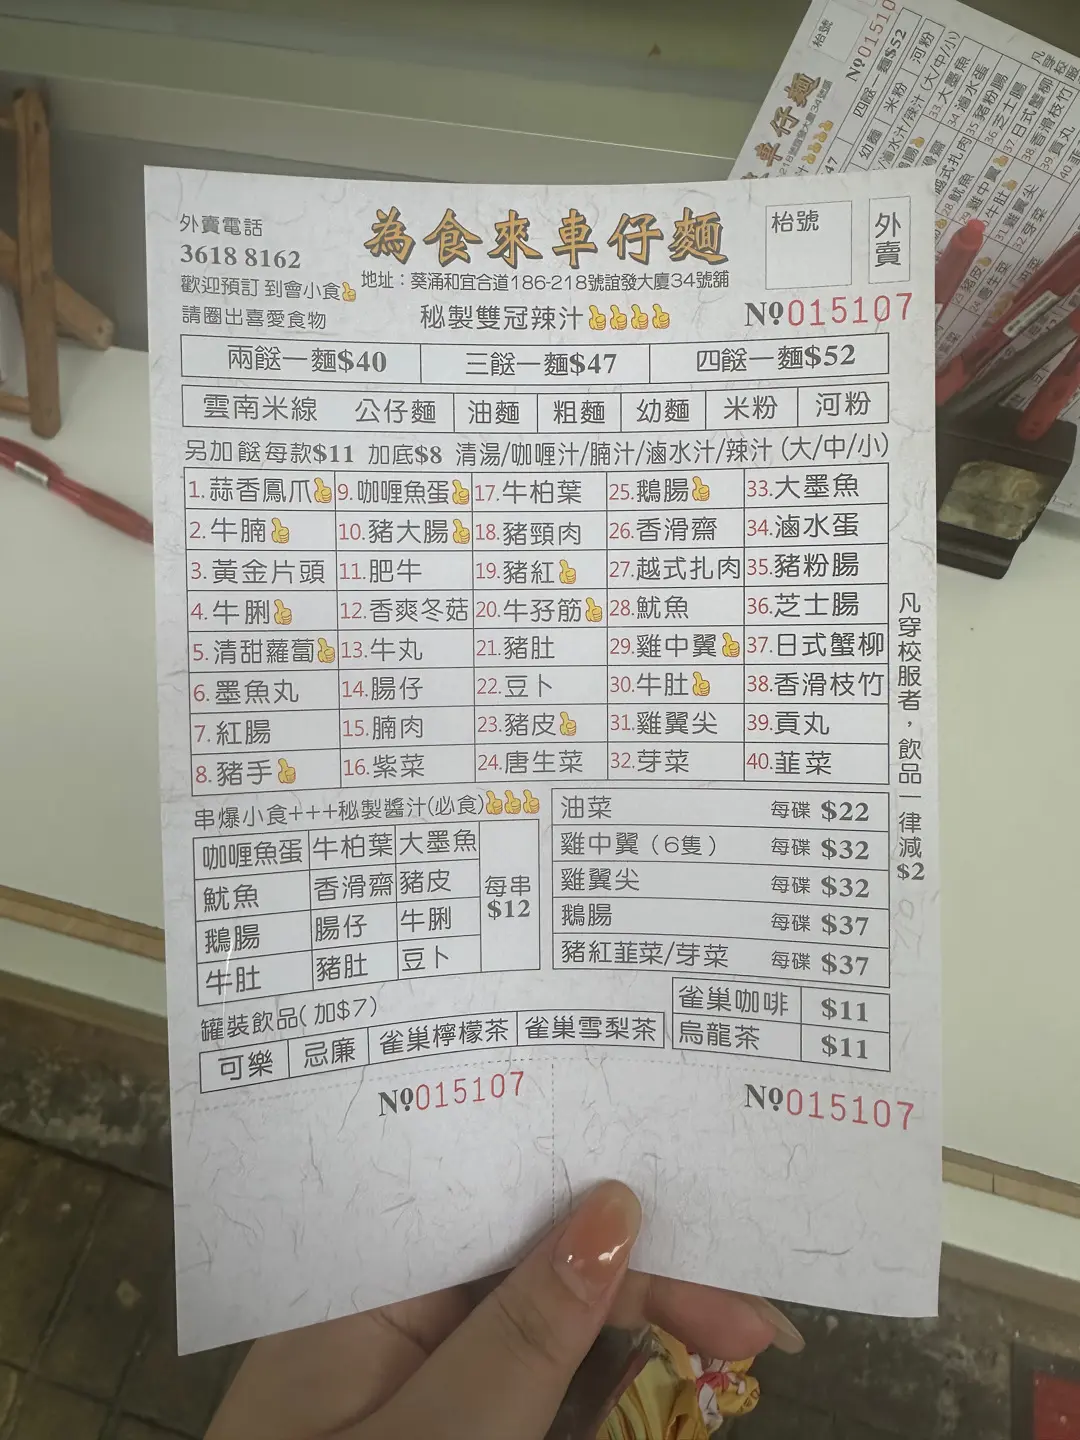 外賣電話
3618 8162
歡迎預訂 到會小食👍
請圈出喜愛食物
為食來車仔麵
地址：葵涌和宜合道186-218號誼發大廈34號舖
秘製雙冠辣汁👍👍👍👍
枱號
外賣
Nº015107
兩餸一麵$40 三餸一麵$47 四餸一麵$52
雲南米線 公仔麵 油麵 粗麵 幼麵 米粉 河粉
另加餸每款$11 加底$8 清湯/咖喱汁/腩汁/滷水汁/辣汁 (大/中/小)
1.蒜香鳳爪👍 9.咖喱魚蛋👍 17.牛柏葉 25.鵝腸👍 33.大墨魚
2.牛腩👍 10.豬大腸👍 18.豬頸肉 26.香滑齋 34.滷水蛋
3.黃金片頭 11.肥牛 19.豬紅👍 27.越式扎肉 35.豬粉腸
4.牛脷👍 12.香爽冬菇 20.牛孖筋👍 28.魷魚 36.芝士腸
5.清甜蘿蔔👍 13.牛丸 21.豬肚 29.雞中翼👍 37.日式蟹柳
6.墨魚丸 14.腸仔 22.豆卜 30.牛肚👍 38.香滑枝竹
7.紅腸 15.腩肉 23.豬皮👍 31.雞翼尖 39.貢丸
8.豬手👍 16.紫菜 24.唐生菜 32.芽菜 40.韮菜
凡穿校服者，飲品一律減$2
串爆小食+++秘製醬汁(必食)👍👍👍
咖喱魚蛋 牛柏葉 大墨魚
魷魚 香滑齋 豬皮
鵝腸 腸仔 牛脷
牛肚 豬肚 豆卜
每串
$12
油菜 每碟 $22
雞中翼（6隻） 每碟 $32
雞翼尖 每碟 $32
鵝腸 每碟 $37
豬紅韮菜/芽菜 每碟 $37
罐裝飲品(加$7)
可樂 忌廉 雀巢檸檬茶 雀巢雪梨茶
雀巢咖啡 $11
烏龍茶 $11
Nº015107
Nº015107